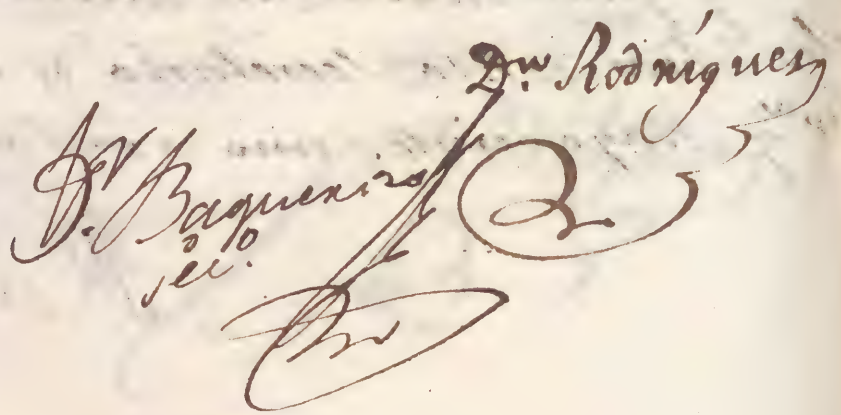 Dr. Rodríguez
Dr. Baqueriro
sec.º